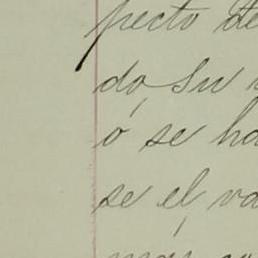 pecto de
do, su
o se ha
se el va